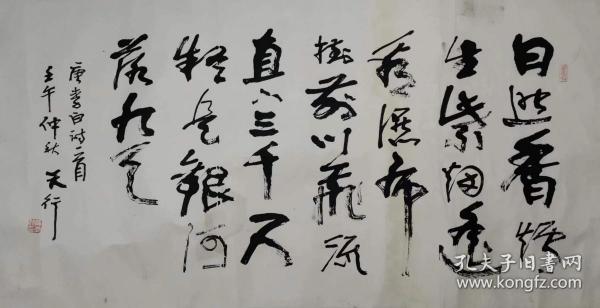 日照香爐
生紫烟遥
看瀑布
掛前川飛流
直下三千尺
疑是銀河
落九天
唐李白詩一首
壬午仲秋 天行
孔夫子旧书网